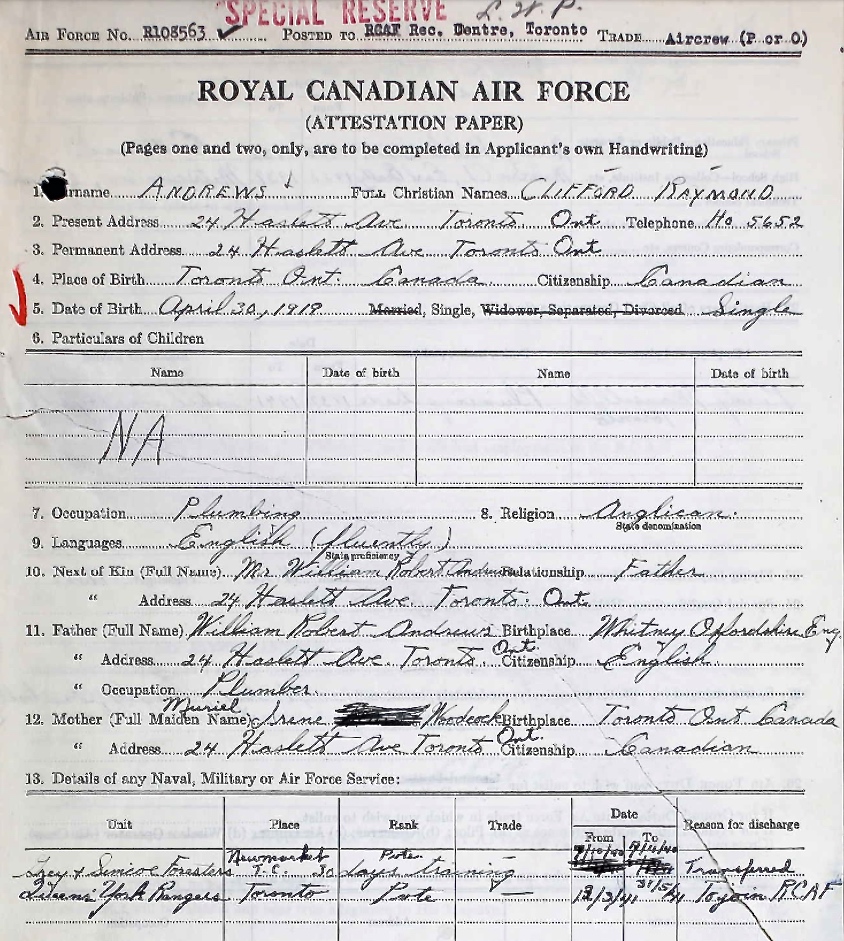 SPECIAL RESERVE L.W.P.
AIR FORCE No. R108563 ✓ POSTED TO RCAF Rec. Centre, Toronto TRADE Aircrew (P or O)
ROYAL CANADIAN AIR FORCE
(ATTESTATION PAPER)
(Pages one and two, only, are to be completed in Applicant's own Handwriting)
1. Surname ANDREWS FULL Christian Names CLIFFORD RAYMOND
2. Present Address 24 Haslett Ave Toronto Ont Telephone Ho 5652
3. Permanent Address 24 Haslett Ave Toronto Ont
4. Place of Birth Toronto Ont. Canada Citizenship Canadian
5. Date of Birth April 30, 1919 Married, Single, Widower, Separated, Divorced Single
6. Particulars of Children
Name Date of birth Name Date of birth
NA
7. Occupation Plumbing 8. Religion Anglican.
State denomination
9. Languages English (fluently)
State proficiency
10. Next of Kin (Full Name) Mr William Robert Andrews Relationship Father
" Address 24 Haslett Ave. Toronto. Ont.
11. Father (Full Name) William Robert Andrews Birthplace Whitney Oxfordshire Eng.
" Address 24 Haslett Ave. Toronto Ont. Citizenship English
" Occupation Plumber.
12. Mother (Full Maiden Name) Muriel Irene Woodcock Birthplace Toronto Ont Canada
" Address 24 Haslett Ave Toronto Ont. Citizenship Canadian
13. Details of any Naval, Military or Air Force Service:
Unit Place Rank Trade Date From To Reason for discharge
Grey & Simcoe Foresters Newmarket T.C. 30 days training Pte. 9/10/40 Transferred
Queens York Rangers Toronto Pvte — 12/3/41 31/5/41 To join RCAF